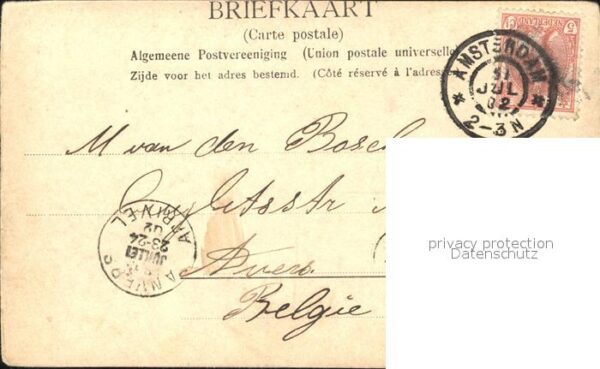 BRIEFKAART
(Carte postale)
Algemeene Postvereeniging (Union postale universelle
Zijde voor het adres bestemd. (Côté réservé à l'adres
NEDERLAND
5
AMSTERDAM
JUL
02
2-3N
M van den Bosch
Anvers
Belgie
ANVERS
JUILLET
23-24
02
privacy protection
Datenschutz